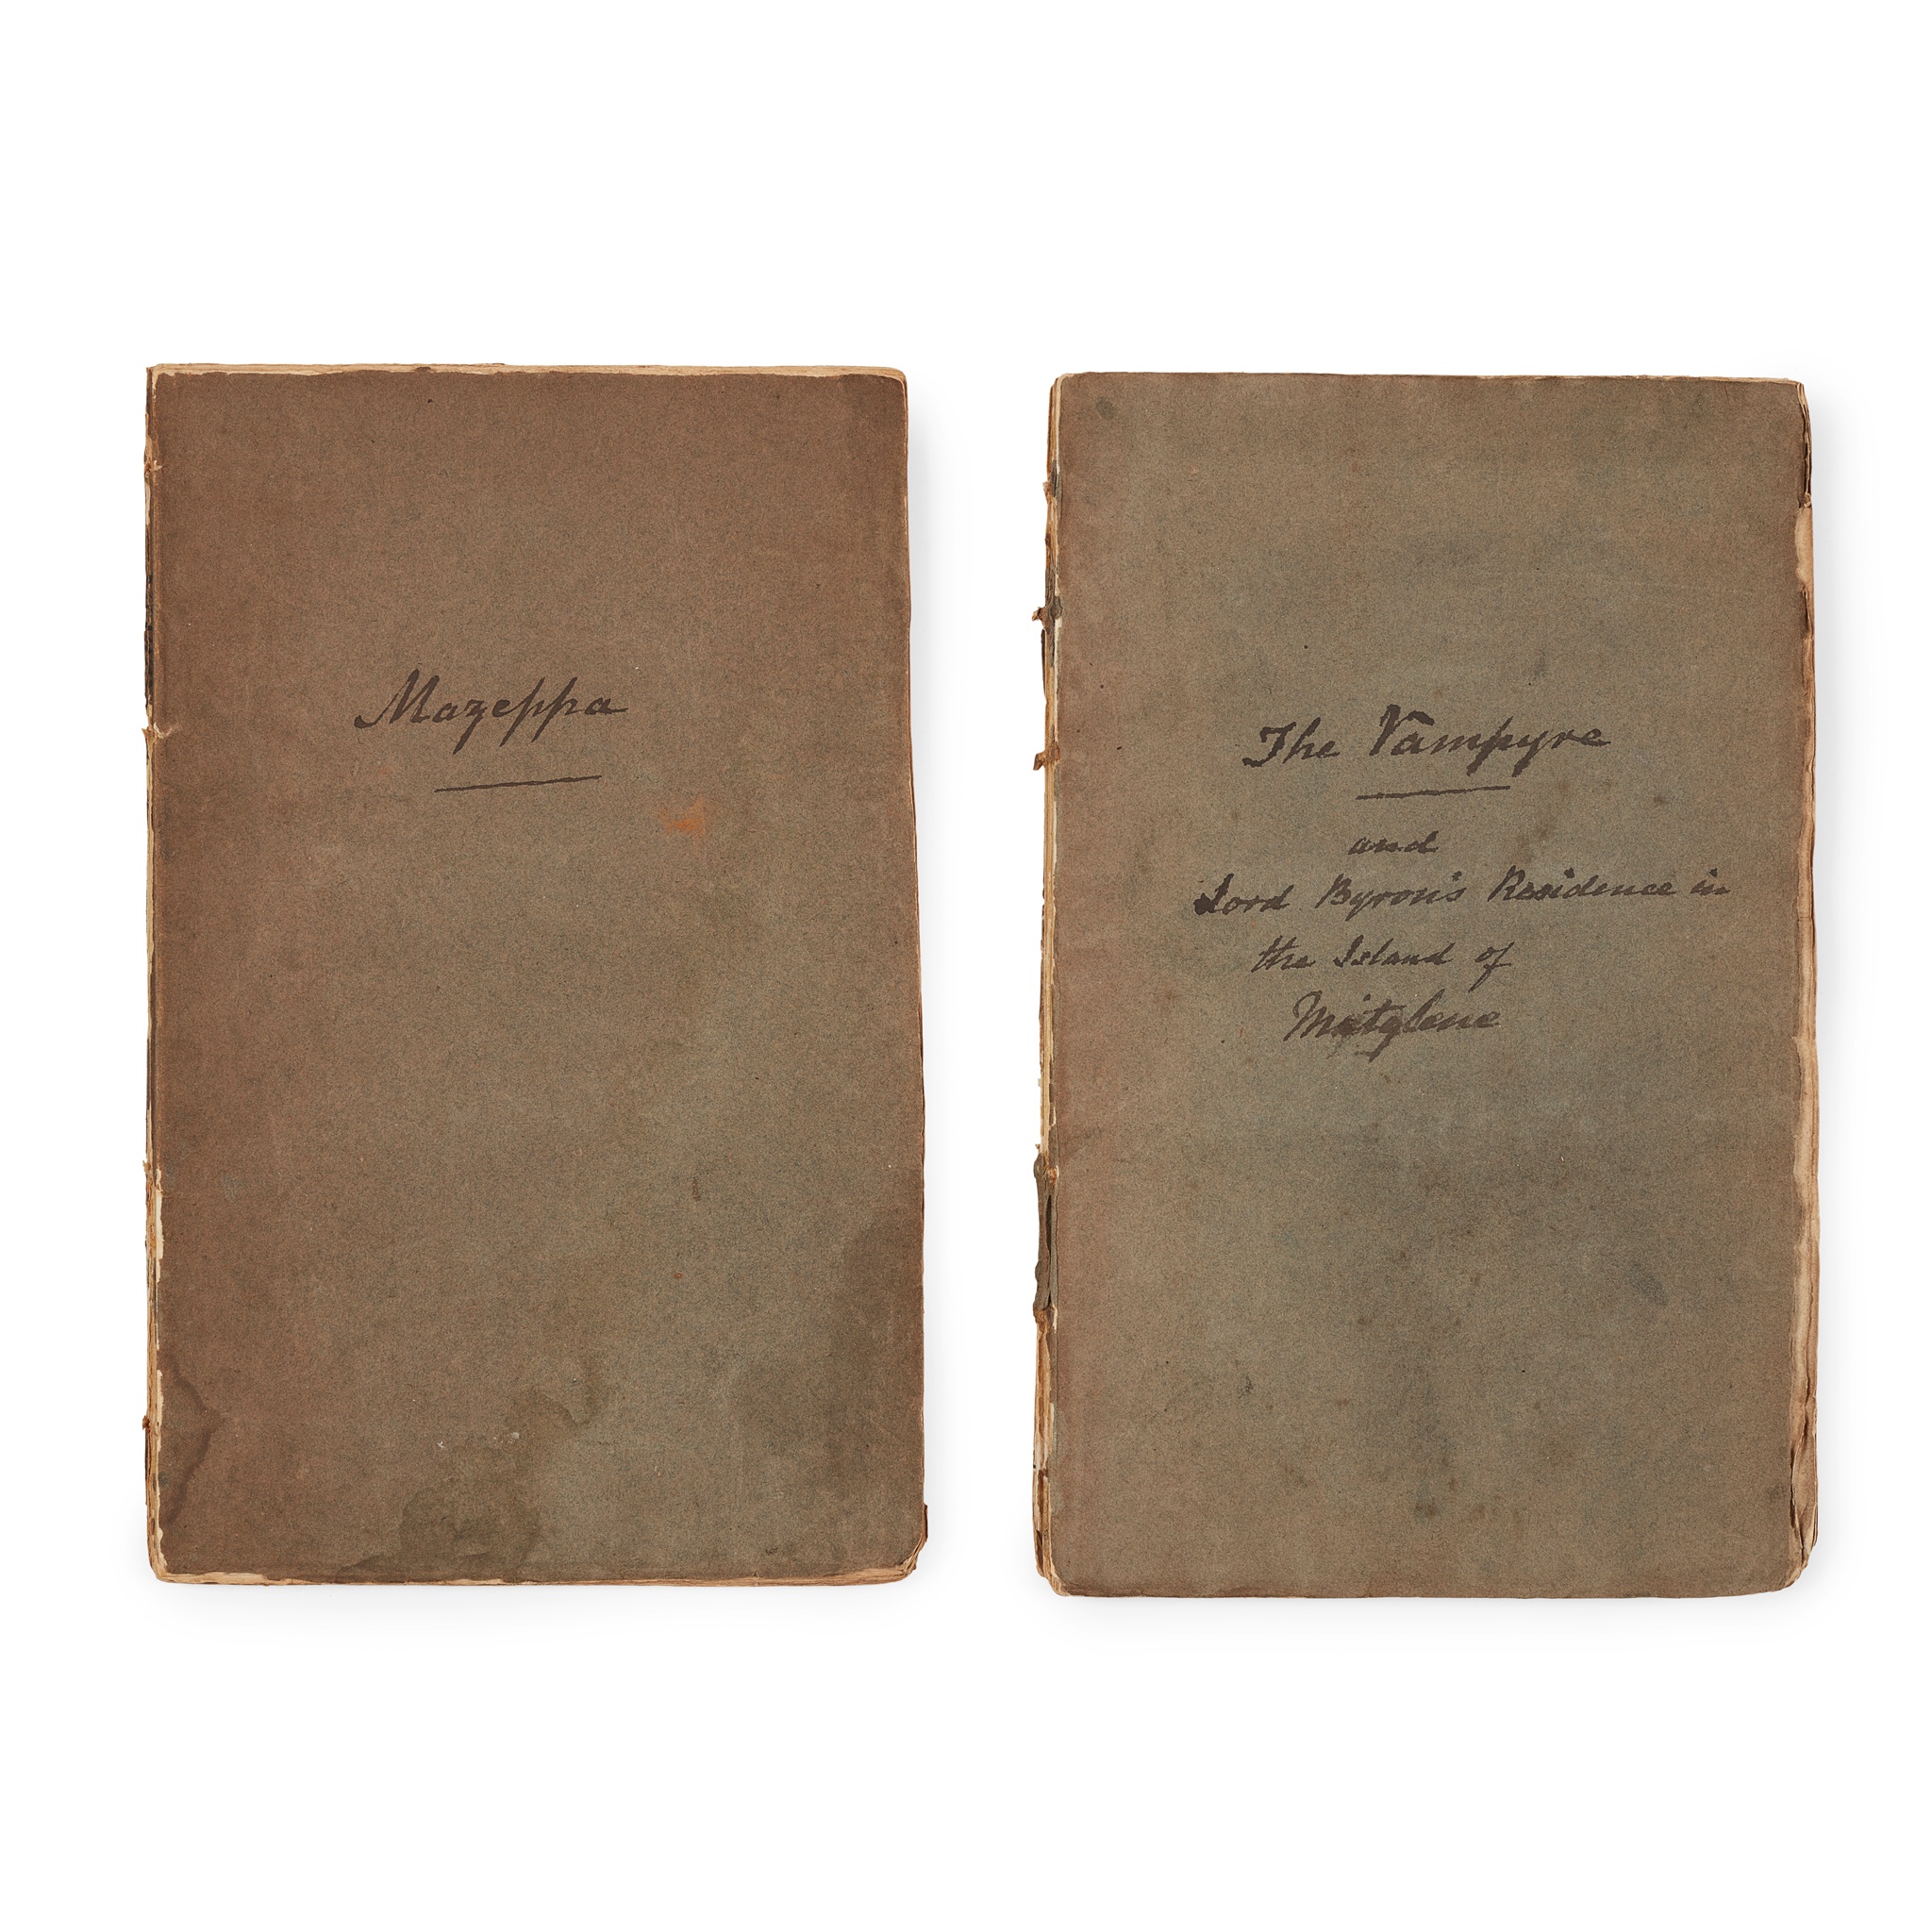 Mazeppa
The Vampyre
and
Lord Byron's Residence in
the Island of
Mitylene